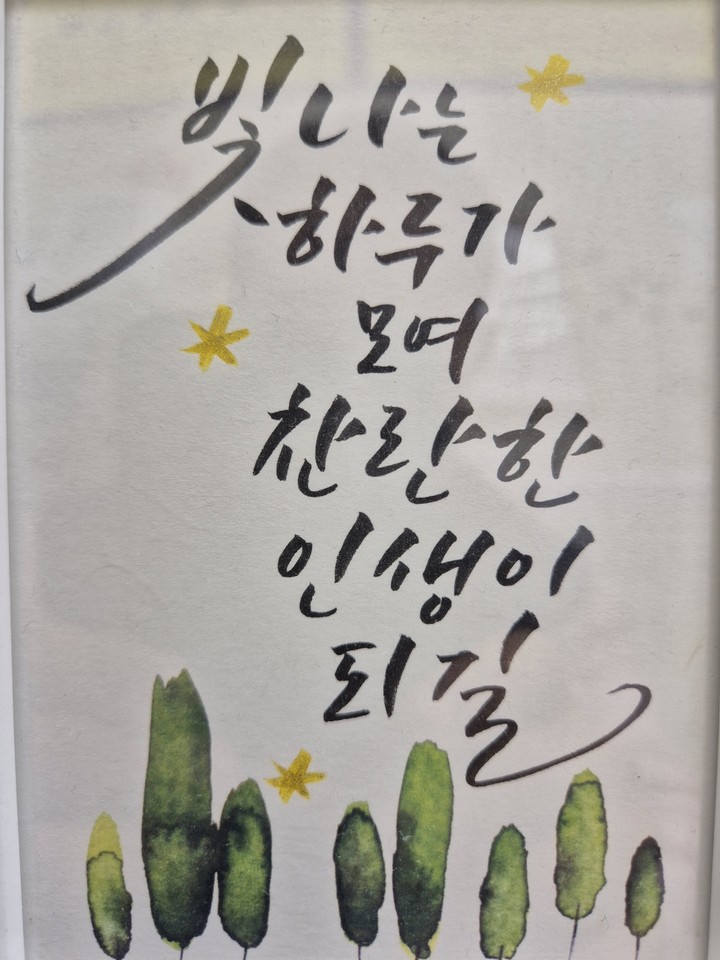 빛나는
하루가
모여
찬란한
인생이
되길